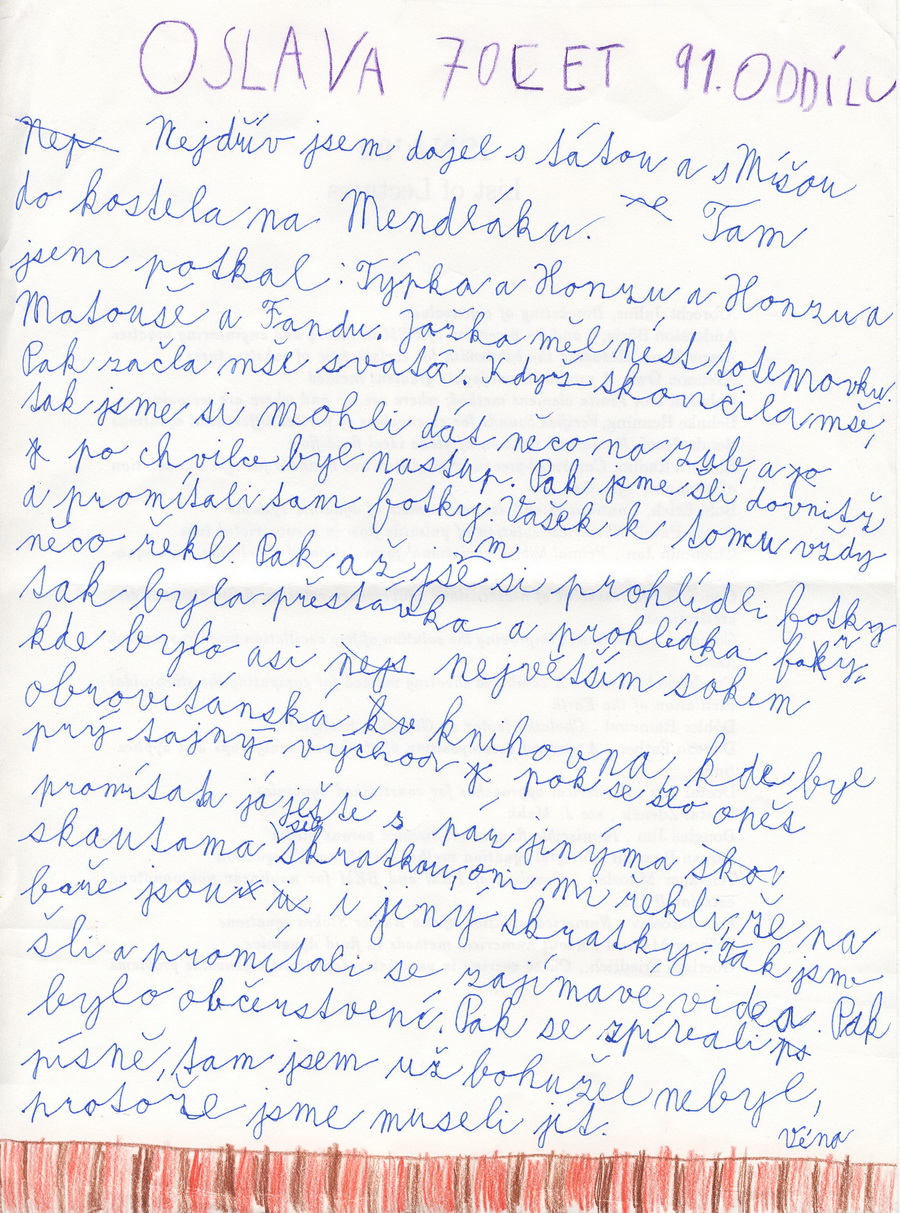 OSLAVA 70LET 91.ODDÍLU
Nejdřív jsem dojel s tátou a s Míšou
do kostela na Mendláku. Tam
jsem potkal: Týpka a Honzu a Honzu a
Matouše a Fandu. Jozka mel nest totemovku.
Pak začla mše svatá. Když skončila mše,
tak jsme si mohli dát něco na zub, a
po chvilce byl nastup. Pak jsme šli dovnitř
a promítali tam fotky. Vašek k tomu vždy
něco řekl. Pak az jsme si prohlídli fotky
tak byla přestávka a prohlídka fary,
kde bylo asi největším šokem
obrovitánská knihovna, kde byl
prý tajný východ pak se šlo opět
promítat já ještě s pár jinyma
skautama šel skratkou, oni mi řekli, že na
faře jsou i jiný skratky. Tak jsme
šli a promítali se zajímavé videa. Pak
bylo občerstvení. Pak se zpívali
písně, tam jsem už bohužel nebyl,
protože jsme museli jít.
Véna